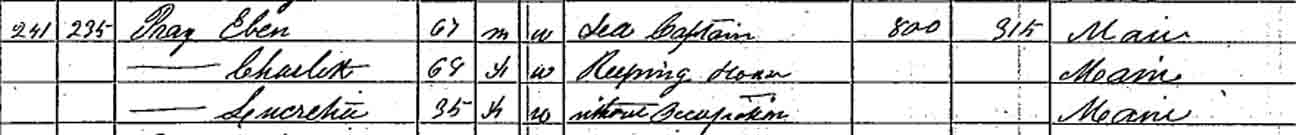 241 235 Pray Eben 67 m w Sea Captain 800 315 Main
—— Charlott 68 f w Keeping House Maine
—— Lucretia 35 f w without Occupation Maine